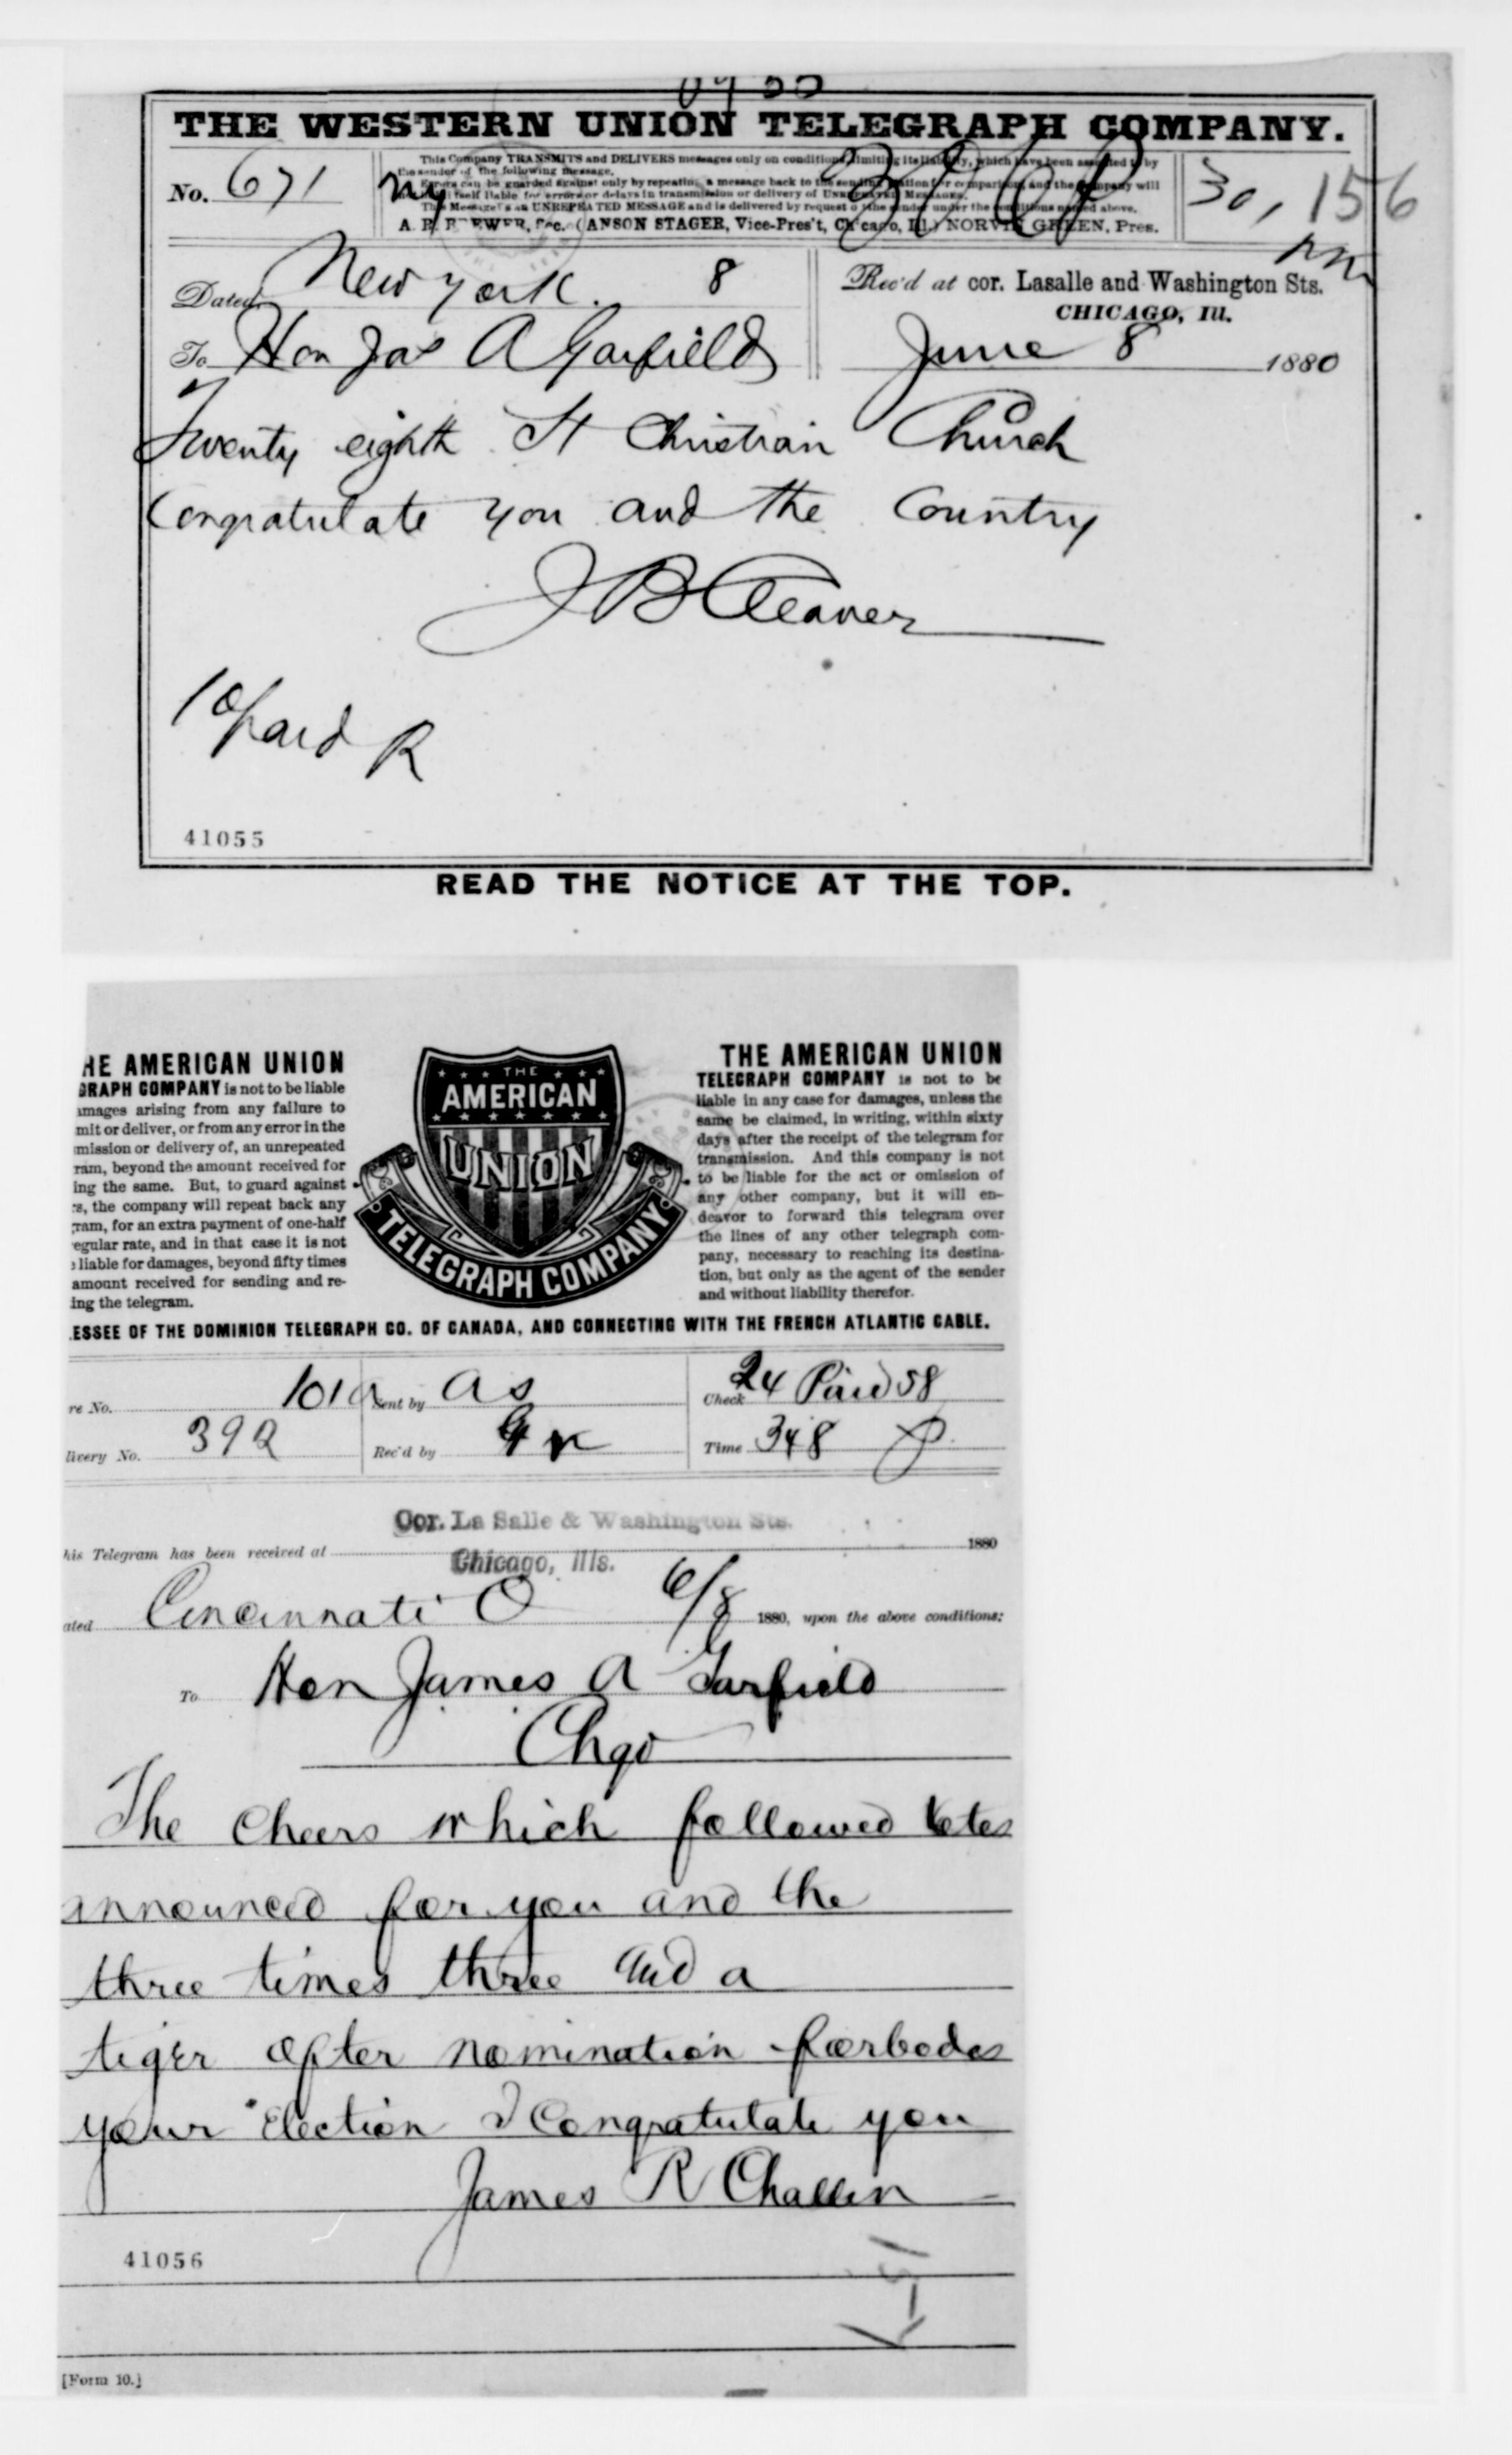 THE WESTERN UNION TELEGRAPH COMPANY.
No. 671
This Company TRANSMITS and DELIVERS messages only on conditions, limiting its liability, which have been assented to by
the sender of the following message.
Errors can be guarded against only by repeating a message back to the sending station for comparison, and the company will
not hold itself liable for errors or delays in transmission or delivery of UNREPEATED MESSAGES.
This Message is an UNREPEATED MESSAGE and is delivered by request of the sender under the conditions named above.
A. R. BREWER, Sec. (ANSON STAGER, Vice-Pres't, Chicago, Ill.) NORVIN GREEN, Pres.
30, 156
Dated New York. 8
Rec'd at cor. Lasalle and Washington Sts.
CHICAGO, Ill.
To Hon Jas A Garfield
June 8 1880
Twenty eighth St Christian Church
Congratulate you and the Country
J B Cleaver
10 paid R
41055
READ THE NOTICE AT THE TOP.
HE AMERICAN UNION
GRAPH COMPANY is not to be liable
amages arising from any failure to
mit or deliver, or from any error in the
mission or delivery of, an unrepeated
ram, beyond the amount received for
ing the same. But, to guard against
rs, the company will repeat back any
gram, for an extra payment of one-half
egular rate, and in that case it is not
e liable for damages, beyond fifty times
amount received for sending and re-
ing the telegram.
THE AMERICAN UNION TELEGRAPH COMPANY
THE AMERICAN UNION
TELEGRAPH COMPANY is not to be
liable in any case for damages, unless the
same be claimed, in writing, within sixty
days after the receipt of the telegram for
transmission. And this company is not
to be liable for the act or omission of
any other company, but it will en-
deavor to forward this telegram over
the lines of any other telegraph com-
pany, necessary to reaching its destina-
tion, but only as the agent of the sender
and without liability therefor.
ESSEE OF THE DOMINION TELEGRAPH CO. OF CANADA, AND CONNECTING WITH THE FRENCH ATLANTIC CABLE.
re No. 101a Sent by as Check 24 Paid 58
livery No. 392 Rec'd by Time 348 P
Cor. La Salle & Washington Sts.
his Telegram has been received at 1880
Chicago, Ills.
ated Cincinnati O 6/8 1880, upon the above conditions:
To Hon James A Garfield
Chgo
The Cheers which followed Votes
announced for you and the
three times three and a
tiger after nomination forbodes
your Election I Congratulate you
James R Challen
41056
[Form 10.]